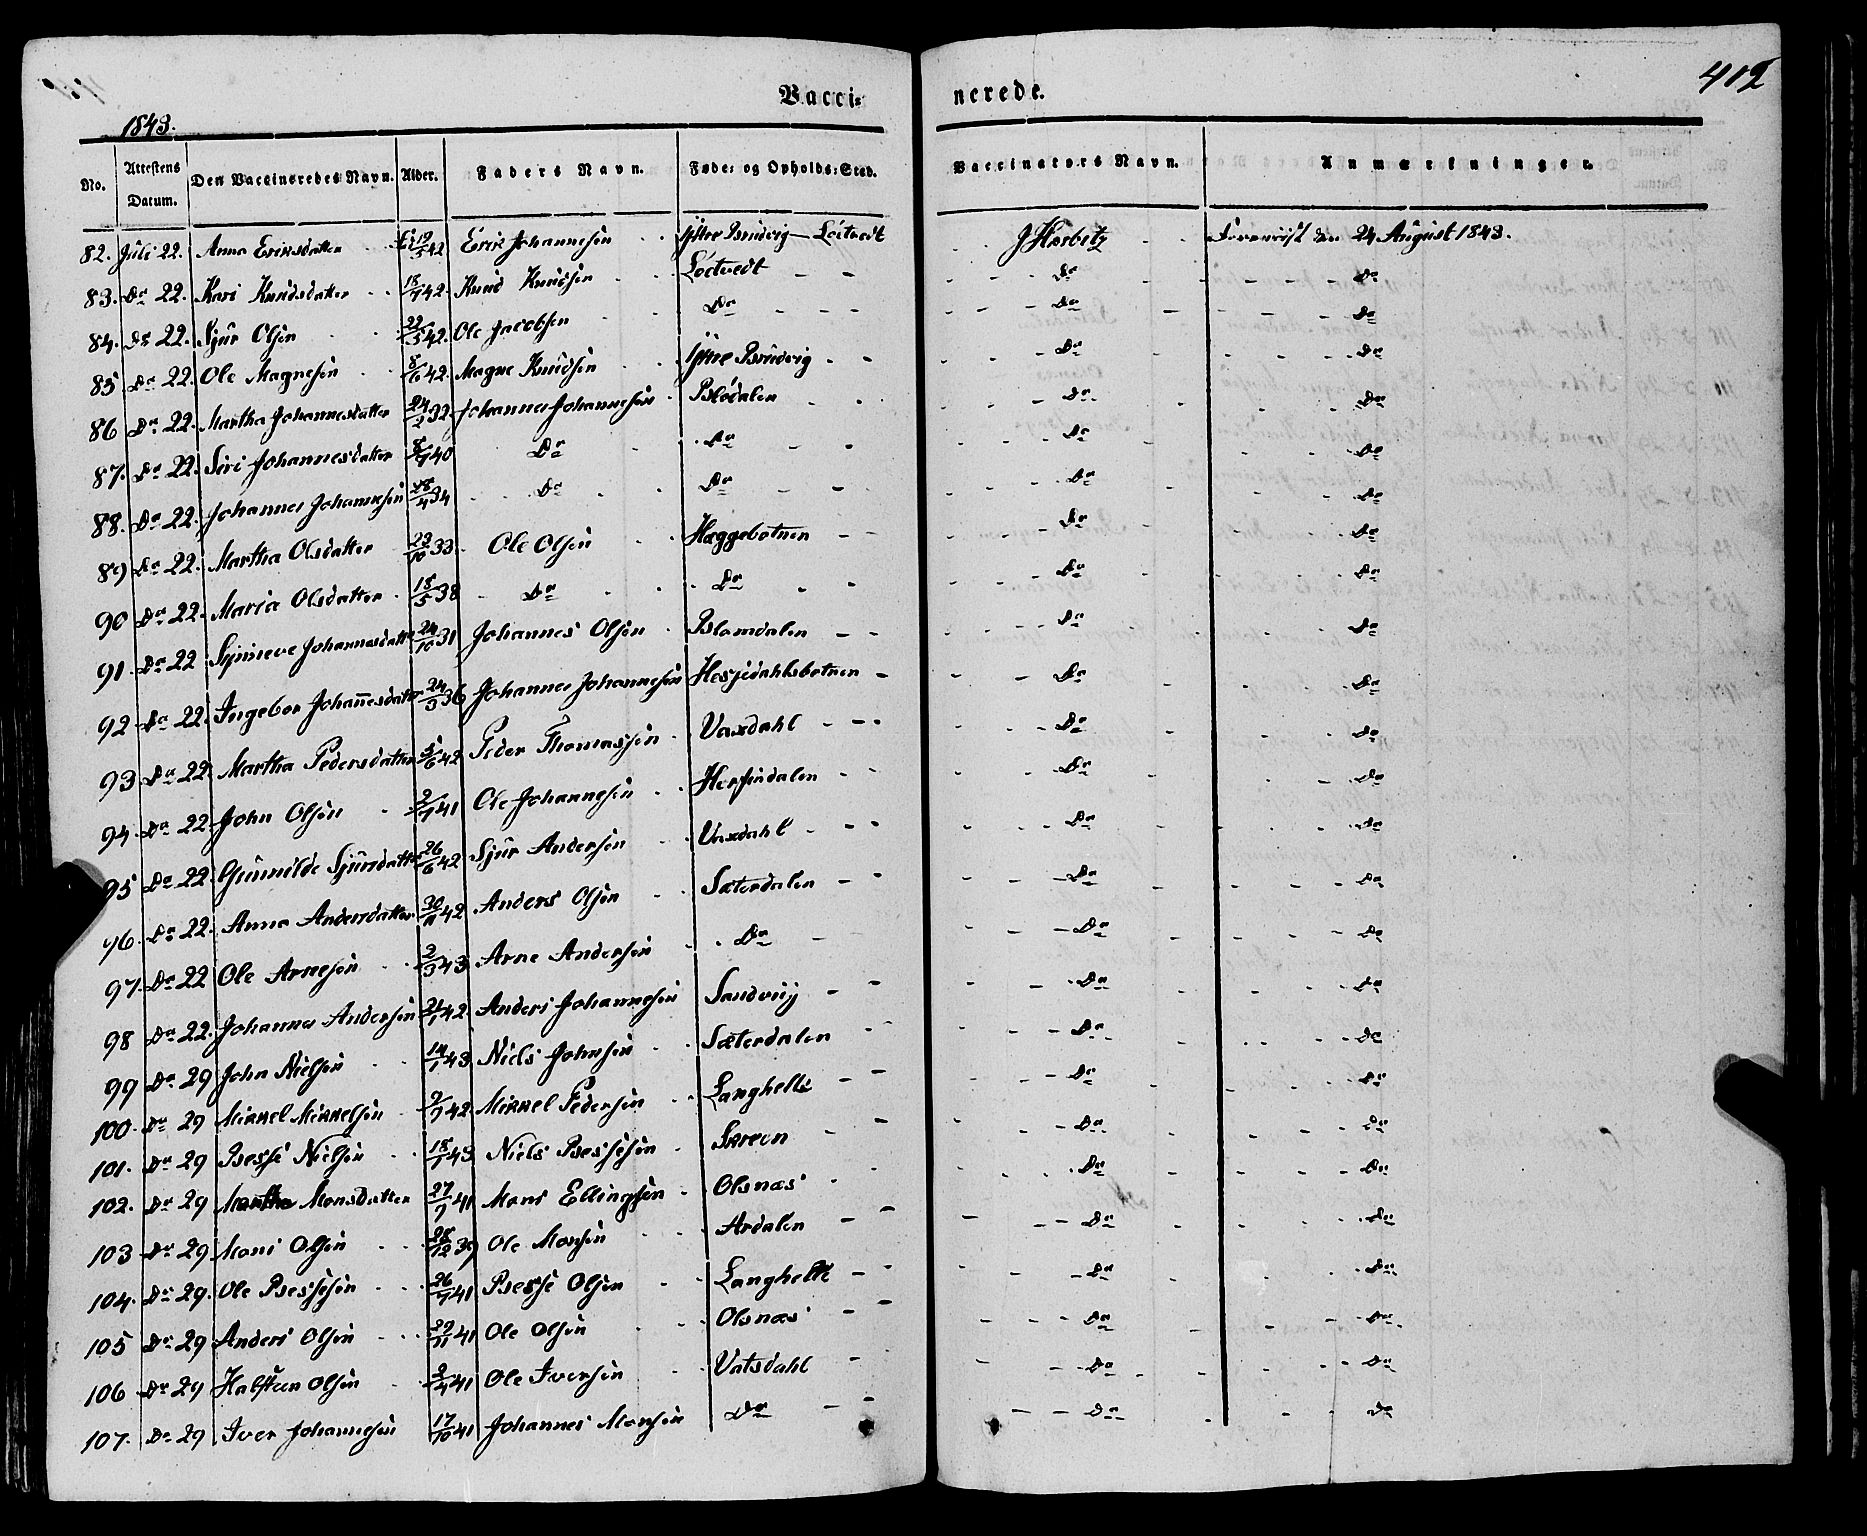 412
Vacci= nerede.
1843.
No. Attestens Datum. Den Vaccineredes Navn. Alder. Faders Navn. Føde= og Opholds=Sted. Vaccinators Navn. Anmærkninger.
82. Juli 22. Anna Eriksdatter 42 Erik Johannesen Ijttre Bruvig — Löetvedt J Herbitz Foreviist den 24 August 1843.
83. Do 22. Kari Knudsdatter 18/7 42. Knud Knudsen Löetvedt Do Do
84. Do 22. Sjur Olsen 22/5 42. Ole Jacobsen Do Do
85 Do 22. Ole Magnesen 8/6 42. Magne Knudsen Ijttre Bruvig Do Do
86 Do 22. Martha Johannesdatter 24/2 32. Johannes Johannesen Blodalen Do Do
87. Do 22. Siri Johannesdatter 8/7 40 Do Do Do Do
88. Do 22. Johannes Johannesen 28/4 34 Do Do Do Do
89 Do 22. Martha Olsdatter 23/10 33. Ole Olsen Hæggebotnen Do Do
90 Do 22. Maria Olsdatter 18/5 38 Do Do Do Do
91. Do 22 Synneve Johannesdatter 24/10 31 Johannes Olsen Blomdalen Do Do
92 Do 22. Ingebor Johañesdatter 24/3 36 Johannes Johannesen Hesjedahlsbotnen Do Do
93 Do 22. Martha Pedersdatter 5/6 42 Peder Thomassen Vaxdahl Do Do
94. Do 22. John Olsen 2/7 41 Ole Johannesen Herfindalen Do Do
95 Do 22. Gunnilde Sjursdatter 26/6 42 Sjur Andersen Vaxdahl Do Do
96. Do 22. Anna Andersdatter 30/11 42 Anders Olsen Sæterdalen Do Do
97. Do 22 Ole Arnesen 2/3 43 Arne Andersen Do Do Do
98 Do 22. Johannes Andersen 21/1 42. Anders Johannesen Sandviig Do Do
99 Do 29 John Nielsen 14/1 43. Niels Johnsen Sæterdalen Do Do
100. Do 29 Mikkel Mikkelsen 9/7 42. Mikkel Pedersen Langhelle Do Do
101. Do 29 Besse Nielsen 18/1 43 Niels Bessesen Skreen Do Do
102. Do 29 Martha Monsdatter 27/7 41 Mons Ellingsen Olsnæs Do Do
103 Do 29 Mons Olsen 28/12 39 Ole Monsen Ardalen Do Do
104. Do 29. Ole Bessesen 26/7 41 Besse Olsen Langhelle Do Do
105 Do 29 Anders Olsen 29/11 41 Ole Olsen Olsnæs Do Do
106 Do 29 Halsteen Olsen 9/4 41 Ole Iversen Vatsdahl Do Do
107. Do 29 Iver Johannesen 17/10 41 Johannes Monsen Do Do Do